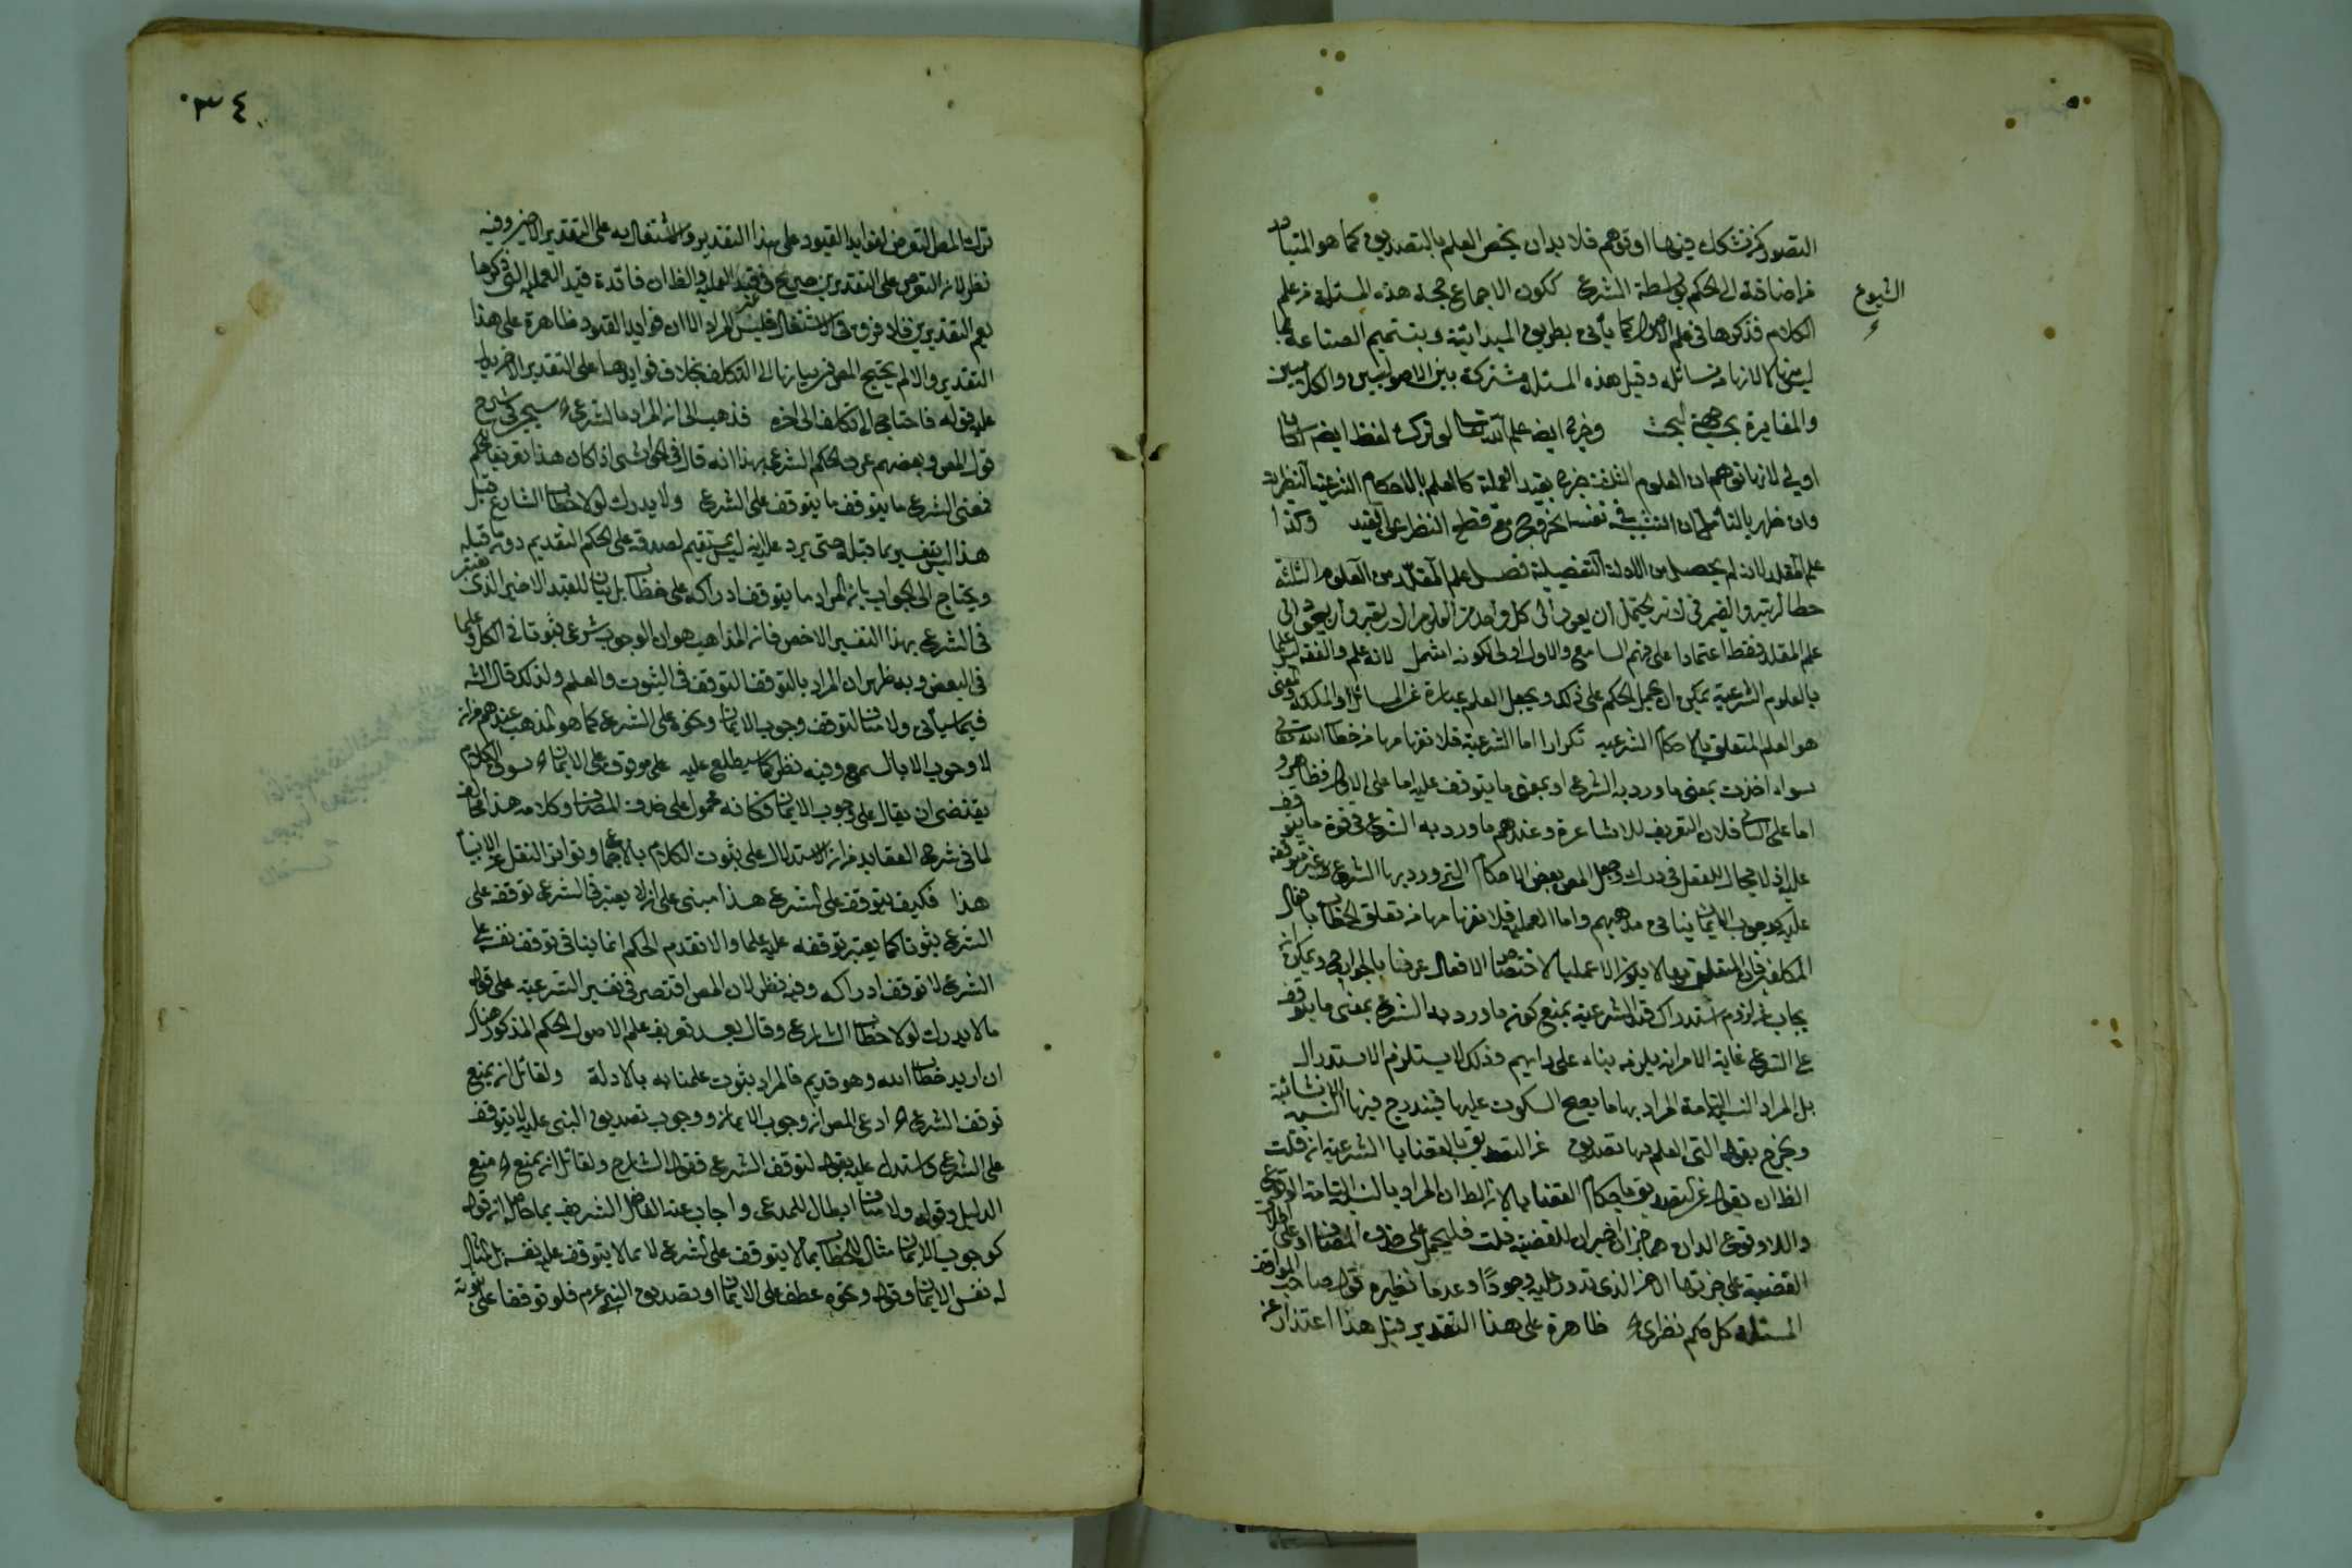 التصور كمن تشكك فيها او توهم فلا بد ان يخص العلم بالتصديق كما هو المتبادر
من اضافته الى الحكم بواسطة الشرع ككون الاجماع حجة هذه المسئلة من علم
الشيوع
الكلام فذكرها في علم الاصول كما يأتي بطريق المبدائية وبتتميم الصناعة بما
ليس منها لا لانها من مسائله وقيل هذه المسئلة مشتركة بين الاصوليين والكلاميين
والمغايرة بحسب جهة البحث وخرج ايضا علم الله تعالى لو ترك لفظ ايضا لكان
اولى لانه يوهم ان العلوم الثلثة خرج بقيد العملية كالعلم بالاحكام الشرعية النظرية
وان ظهر بالتأمل ان التشبيه في نفس الخروج مع قطع النظر على القيد وكذا
علم المقلد لانه لم يحصل من الادلة التفصيلية فصل علم المقلد من العلوم الثلثة
حطا لرتبته والضمير في لانه يحتمل ان يعود الى كل واحد من العلوم الاربعة وان يعود الى
علم المقلد فقط اعتمادا على فهم السامع والاول اولى لكونه اشمل لانه علم والفقه ليس علما
بالعلوم الشرعية يمكن ان يحمل الحكم على ذلك ويجعل العلم عبارة عن المسائل او الملكة والمعنى
هو العلم المتعلق بالاحكام الشرعية تكرارا اما الشرعية فلانفهامها من خطاب الله تعالى
سواء اخذت بمعنى ما ورد به الشرع او بمعنى ما يتوقف عليه اما على الاول فظاهر و
اما على الثاني فلان التعريف للاشاعرة وعندهم ما ورد به الشرع في قوة ما يتوقف
عليه اذ لا مجال للعقل في درك وجعل المص بعض الاحكام التي ورد بها الشرع غير متوقفة
عليه كوجوب الايمان ينافي مذهبهم واما العملية فلانفهامها من تعلق الخطاب بافعال
المكلفين فان المتعلق بها لا يكون الا عمليا لاختصاص الافعال عرفا بالجوارح ويمكن ان
يجاب من لزوم استدراك قيد الشرعية بمنع كونه ما ورد به الشرع بمعنى ما يتوقف
على الشرع غاية الامر انه يلزمه بناء على رايهم وذلك لا يستلزم الاستدراك
بل المراد النسبة التامة المراد بها ما يصح السكوت عليها فيندرج فيها النسبة الانشائية
ويخرج بقوله التي العلم بها تصديق عن التصديق بالقضايا الشرعية ان قلت
الظ ان يقول عن التصديق باحكام القضايا لان الظ ان المراد بالنسبة التامة الوقوع
واللاوقوع اللذان هما جزءان اخيران للقضية قلت فليحمل على حذف المضاف او على اطلاق
القضية على جزئها الاخر الذي تدور عليه وجودا وعدما نظيره قول صاحب المواقف
المسئلة كل حكم نظري ظاهرة على هذا التقدير قيل هذا اعتذار عن
٣٤
ترك المص التعرض لفوايد القيود على هذا التقدير والاشتغال به على التقدير الاخير وفيه
نظر لانه التعرض على التقديرين صريح في قيد العملية والظ ان فائدة قيد العملية التي ذكرها
يعم التقديرين فلا فرق في الاشتغال فليس المراد الا ان فوايد القيود ظاهرة على هذا
التقدير والا لم يحتج المص في بيانها الى التكلف بخلاف فوايدها على التقدير الاخر يدل
عليه قوله فاحتاج الى تكلف الى اخره فذهب الى انه المراد بالشرعي سيجئ في شرح
قول المص وبعضهم عرف الحكم الشرعي بهذا انه قال في الحواشي اذا كان هذا تعريفا للحكم
فمعنى الشرعي ما يتوقف ما يتوقف على الشرع ولا يدرك لولا خطاب الشارع قيل
هذا ليس بتفسير بما قبله حتى يرد عليه انه ليس بمستقيم لصدقه على الحكم القديم دون ما قبله
ويحتاج الى الجواب بان المراد ما يتوقف ادراكه على خطاب بل بيان للقيد الاخير الذي يعتبر
في الشرعي بهذا التفسير الاخص فانه المذاهب هو ان الوجوب شرعي ثبوتا في الكل وعلما
في البعض وبه ظهر ان المراد بالتوقف التوقف في الثبوت والعلم ولذلك قال الش
فيما سيأتي ولا منافاة لتوقف وجوب الايمان ونحوه على الشرع كما هو المذهب عندهم من انه
لا وجوب الا بالسمع وفيه نظر كما سيطلع عليه على موقوف على الايمان سوق الكلام
يقتضي ان يقال على وجوب الايمان فكانه محمول على حذف المضاف وكلامه هذا مخالف
لما في شرح العقايد من انه الاستدلال على ثبوت الكلام بالاجماع وتواتر النقل عن الانبياء
هذا فكيف يتوقف على الشرع هذا مبني على انه لا يعتبر في الشرعي توقفه على
الشرع ثبوتا كما يعتبر توقفه عليه علما والا فقدم الحكم انما ينافي توقف نفسه على
الشرع لا توقف ادراكه وفيه نظر لان المص اقتصر في تفسير الشرعية على قوله
ما لا يدرك لولا خطاب الشارع وقال بعد تعريف علم الاصول الحكم المذكور هناك
ان اريد خطاب الله وهو قديم فالمراد بثبوت علمنا به بالادلة ولقائل ان يمنع
توقف الشرع ادعى المص انه وجوب الايمان ووجوب تصديق النبي عليه لا يتوقف
على الشرع واستدل عليه بقوله لتوقف الشرع فقول الشارح ولقائل ان يمنع منع
الدليل وقوله ولا منافاة ابطال للمدعى واجاب عنه الفاضل الشريف بما حاصله ان قوله
كوجوب الايمان مثال للخطاب بما لا يتوقف على الشرع لا مما لا يتوقف عليه نفسه بل المثال
له نفس الايمان وقوله ونحوه عطف على الايمان او تصديق النبي عم فلو توقفا على ثبوته